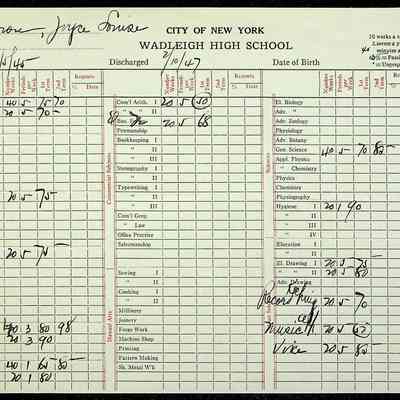 Joyce Louise
CITY OF NEW YORK
WADLEIGH HIGH SCHOOL
/45
Discharged 2/10/47
Date of Birth
10 weeks a
minutes a
Number Weeks
Periods Per Week
1st Term
2nd Term
Regents
% Date
Number Weeks
Periods Per Week
1st Term
2nd Term
Regents
% Date
Number Weeks
Periods Per Week
1st Term
2nd Term
40 5 75 70
20 5 70 -
20 5 75
20 5 75 -
3 80 98
20 3 90
40 1 65 80
20 1 80
Commercial Subjects
Com'l Arith. I 20 5 50
" " II
Bus. 20 5 68
Penmanship
Bookkeeping I
" II
" III
Stenography I
" II
" III
Typewriting I
" II
" III
Com'l Geog.
" Law
Office Practice
Salesmanship
Manual Arts
Sewing I
" II
Cooking I
" II
Millinery
Joinery
Forge Work
Machine Shop
Printing
Pattern Making
Sh. Metal W'k
El. Biology
Adv. "
Adv. Zoology
Physiology
Adv. Botany
Gen. Science 40 5 70 85 -
Appl. Physics
" Chemistry
Physics
Chemistry
Physiography
Hygiene I 20 1 90
" II
" III
" IV
Elocution I
" II
El. Drawing I 20 5 75 -
" " II 20 5 80
Adv. Drawing
Record Keeping 20 5 70
Music 20 5
20 5 85 -